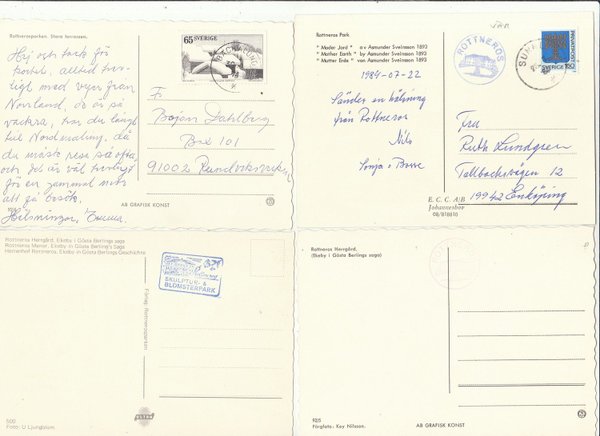 Rottnerosparken. Stora terrassen.
Hej och tack för
kortet, alltid trev-
ligt med vyer från
Norrland, så
vackra, har du långt
till Nordmaling, då
du måste resa så ofta,
och det är väl
för en gammal
att gå
Hälsningar, Emma
65 SVERIGE
F.
Bojan Dahlberg
Box 101
91002 Rundviksverken
AB GRAFISK KONST
Rottneros Park
"Moder Jord" av Asmundur Sveinsson 1893
"Mother Earth" by Asmundur Sveinsson 1893
"Mutter Erde" von Asmundur Sveinsson 1893
1984-07-22
Sänder en hälsning
från Rottneros
Nils
Sonja o Bosse
ROTTNEROS
SVERIGE
Fru
Ruth Lundgren
Tallbacksvägen 12
19942 Enköping
E. C. C. A/B
Johanneshov
08/818810
Rottneros Herrgård, Ekeby i Gösta Berlings saga
Rottneros Manor, Ekeby in Gösta Berling's Saga
Herrenhof Rottneros, Ekeby in Gösta Berlings Geschichte
SKULPTUR- &
BLOMSTERPARK
Förlag: Rottnerosparken
ULTRA
500
Foto: U Ljungblom
Rottneros Herrgård.
(Ekeby i Gösta Berlings saga)
Färgfoto: Kay Nilsson.
AB GRAFISK KONST